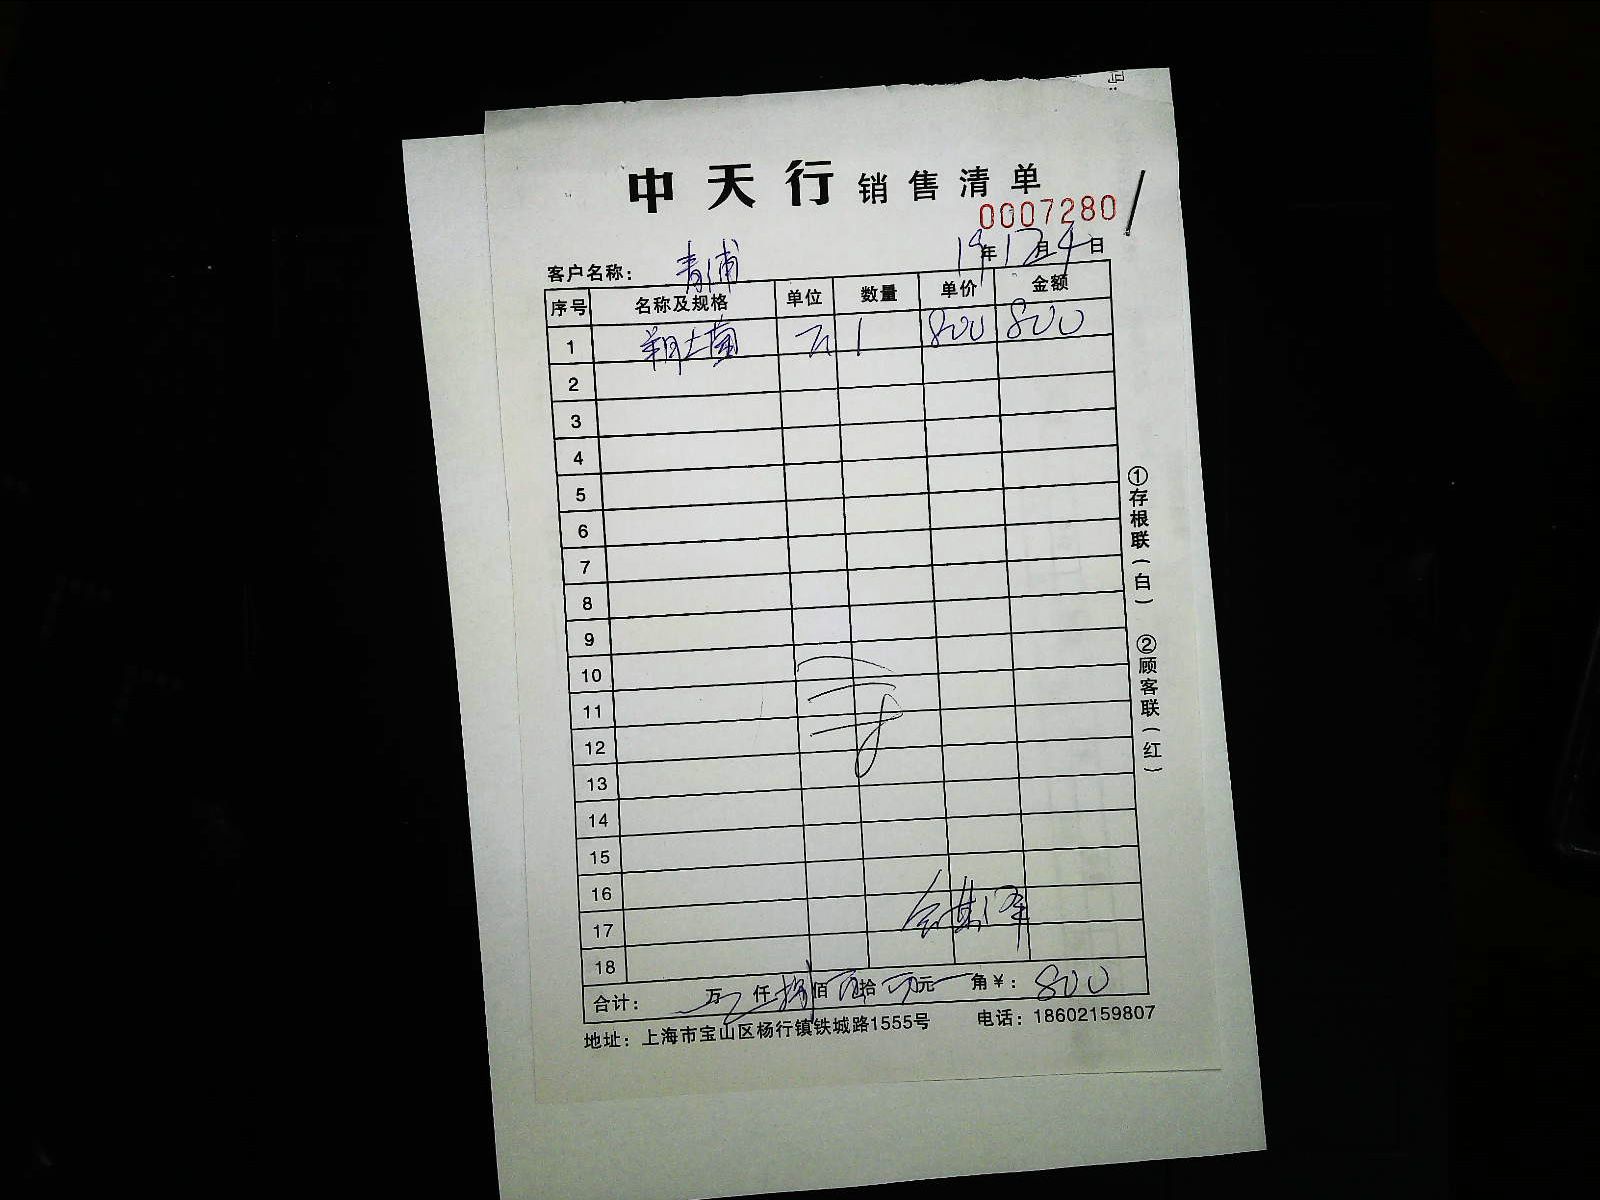 码：
中天行 销售清单
0007280
客户名称： 青浦 19年12月4日
序号 名称及规格 单位 数量 单价 金额
1 1 800 800
2
3
4
5
6
7
8
9
10
11
12
13
14
15
16
17
18
合计： 万 仟 捌 佰 拾 元 角 ¥： 800
地址：上海市宝山区杨行镇铁城路1555号 电话：18602159807
①存根联（白） ②顾客联（红）